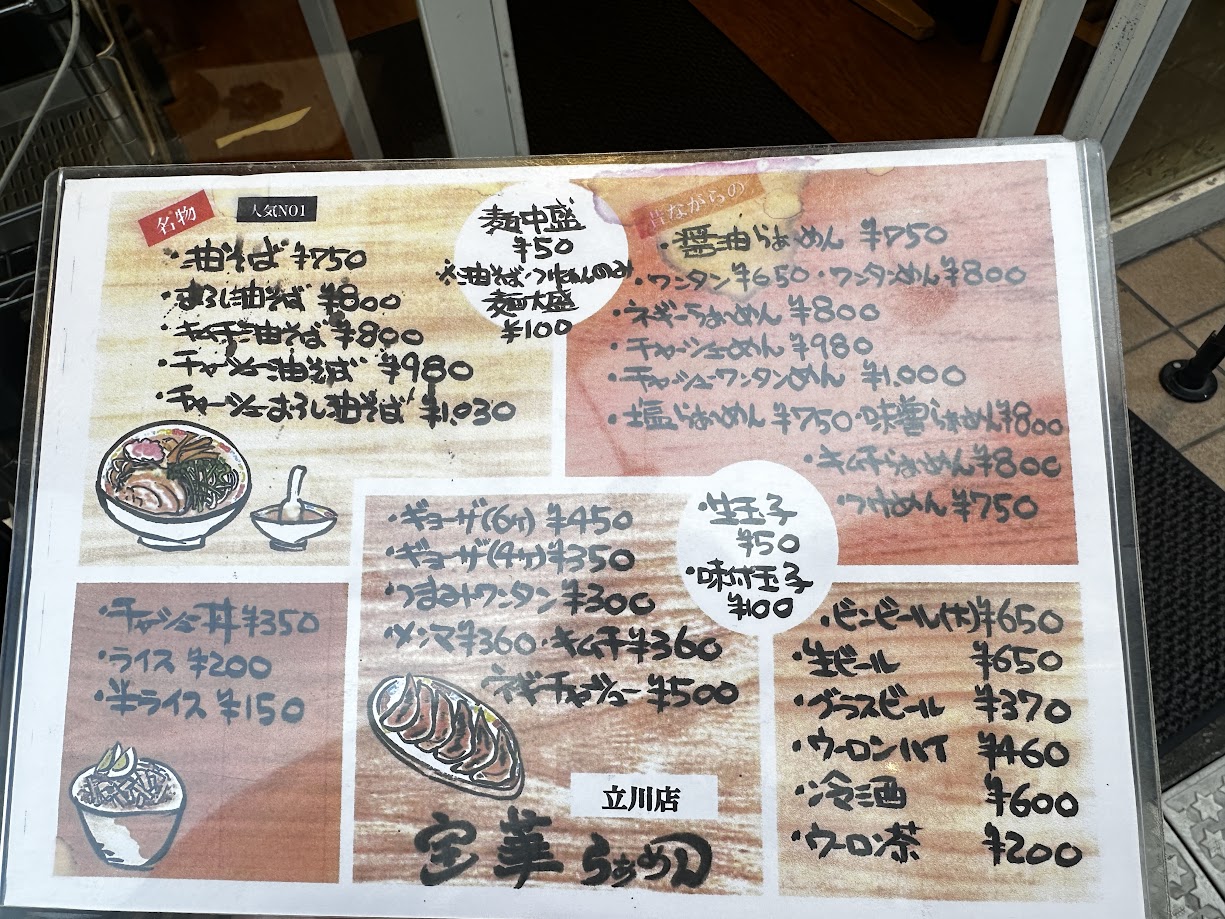 名物
人気NO1
・油そば ¥750
・おろし油そば ¥800
・キムチ油そば ¥800
・チャーシュー油そば ¥980
・チャーシューおろし油そば ¥1.030
麺中盛
¥50
※油そば・つけめんのみ
麺大盛
¥100
昔ながらの
・醤油らぁめん ¥750
・ワンタン ¥650 ・ワンタンめん ¥800
・ネギーらぁめん ¥800
・チャーシューめん ¥980
・チャーシューワンタンめん ¥1.000
・塩らぁめん ¥750 ・味噌らぁめん ¥800
・キムチらぁめん ¥800
・つけめん ¥750
・ギョーザ(6ヶ) ¥450
・ギョーザ(4ヶ) ¥350
・つまみワンタン ¥300
・メンマ ¥360 ・キムチ ¥360
・ネギチャーシュー ¥500
・生玉子
¥50
・味付玉子
¥100
・チャーシュー丼 ¥350
・ライス ¥200
・半ライス ¥150
・ビンビール(大) ¥650
・生ビール ¥650
・グラスビール ¥370
・ウーロンハイ ¥460
・冷酒 ¥600
・ウーロン茶 ¥200
立川店
宝華らぁめん